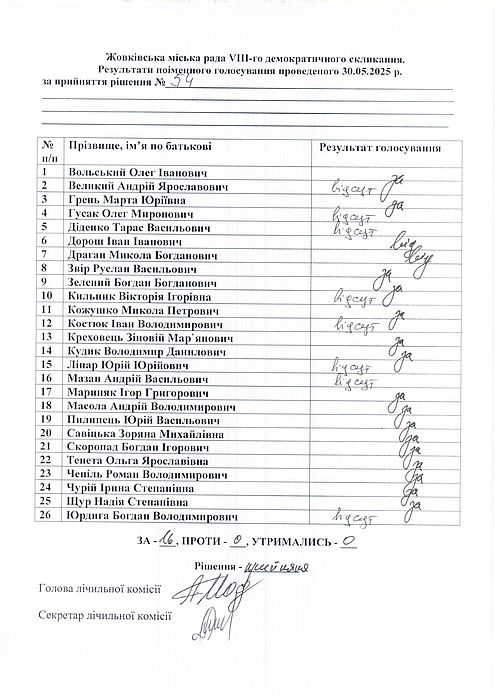 Жовківська міська рада VIII-го демократичного скликання.
Результати поіменного голосування проведеного 30.05.2025 р.
за прийняття рішення № 54
№ п/п Прізвище, ім’я по батькові Результат голосування
1 Вольський Олег Іванович за
2 Великий Андрій Ярославович відсут
3 Грень Марта Юріївна за
4 Гусак Олег Миронович відсут
5 Діденко Тарас Васильович відсут
6 Дорош Іван Іванович від
7 Драган Микола Богданович від
8 Звір Руслан Васильович за
9 Зелений Богдан Богданович за
10 Кильник Вікторія Ігорівна відсут
11 Кожушко Микола Петрович за
12 Костюк Іван Володимирович відсут
13 Креховець Зіновій Мар`янович за
14 Кудик Володимир Данилович за
15 Лінар Юрій Юрійович відсут
16 Мазан Андрій Васильович відсут
17 Мариняк Ігор Григорович за
18 Масола Андрій Володимирович за
19 Пилипець Юрій Васильович за
20 Савіцька Зоряна Михайлівна за
21 Скоропад Богдан Ігорович за
22 Тенета Ольга Ярославівна за
23 Чепіль Роман Володимирович за
24 Чурій Ірина Степанівна за
25 Щур Надія Степанівна за
26 Юрдига Богдан Володимирович відсут
ЗА - 16, ПРОТИ - 0, УТРИМАЛИСЬ - 0
Рішення - прийняте
Голова лічильної комісії
Секретар лічильної комісії